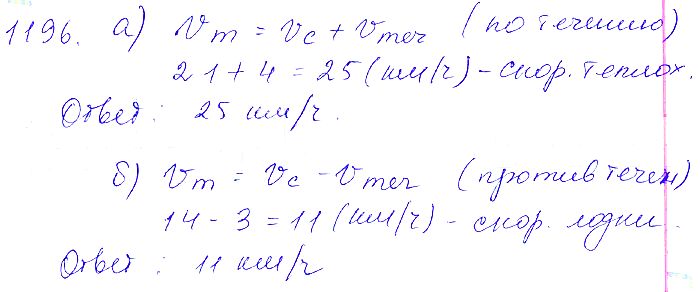 1196. а) Vт = Vс + Vтеч (по течению)
21 + 4 = 25 (км/ч) - скор. теплох.
Ответ: 25 км/ч.
б) Vт = Vс - Vтеч (против течен)
14 - 3 = 11 (км/ч) - скор. лодки.
Ответ: 11 км/ч